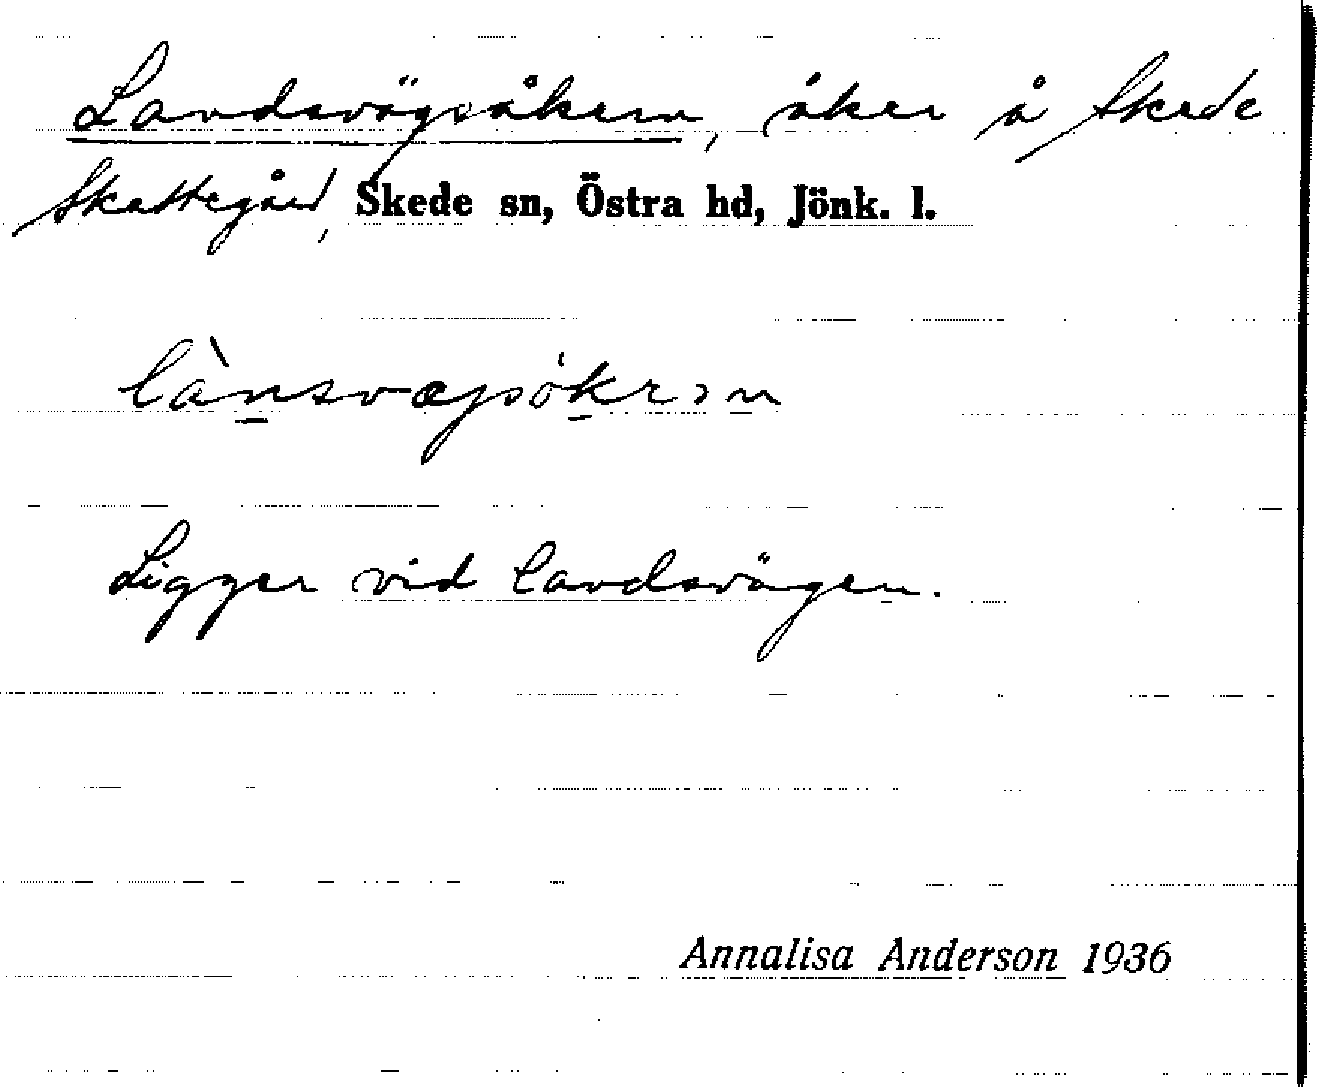 Landsvägsåkern, åker å Skede
Skattegård, Skede sn, Östra hd, Jönk. l.
Ligger vid landsvägen.
Annalisa Anderson 1936